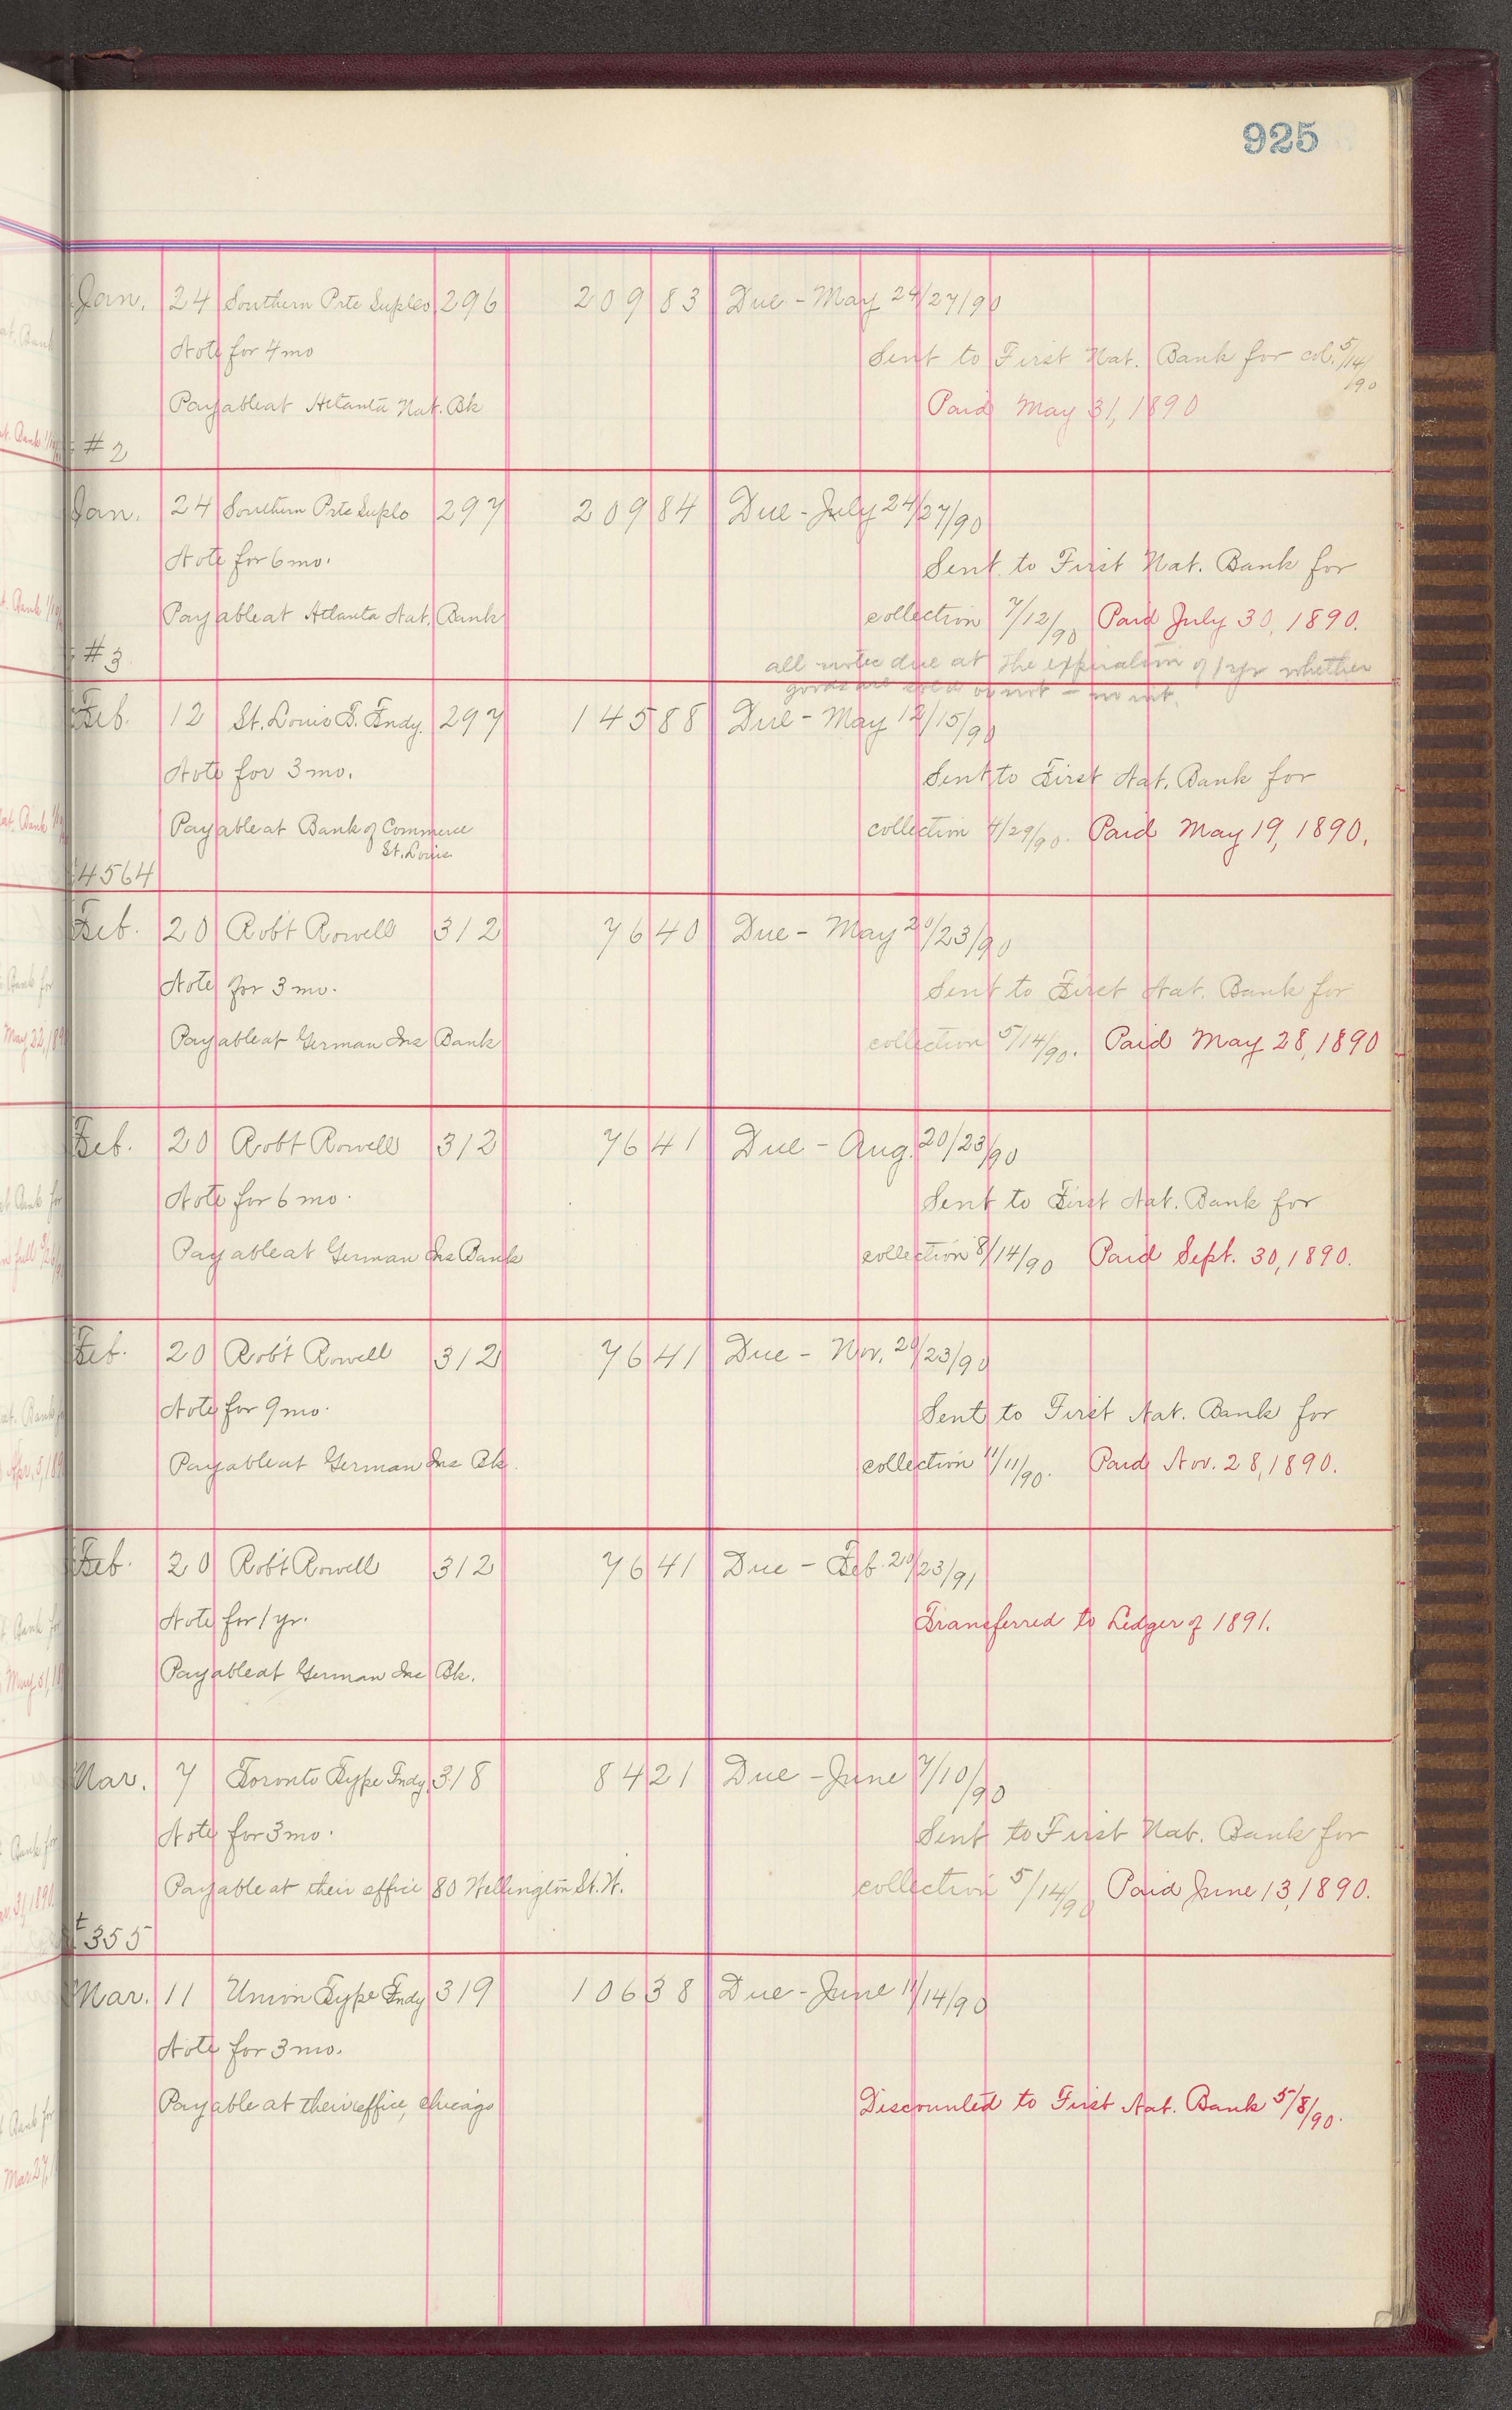 925
Jan. 24 Southern Prtr Suplo 296 209 83 Due - May 24/27/90
Note for 4 mo
Sent to First Nat. Bank for col. 5/14/90
Payable at Atlanta Nat. Bk
Paid May 31, 1890
#2
Jan. 24 Southern Prtr Suplo 297 209 84 Due - July 24/27/90
Note for 6 mo.
Sent to First Nat. Bank for
Payable at Atlanta Nat. Bank
collection 7/12/90 Paid July 30, 1890.
#3
all notes due at the expiration of 1 yr whether
goods are sold or not - no int.
Feb. 12 St. Louis T. Fndy. 297 145 88 Due - May 12/15/90
Note for 3 mo.
Sent to First Nat. Bank for
Payable at Bank of Commerce
St. Louis
collection 4/29/90. Paid May 19, 1890.
4564
Feb. 20 Rob't Rowell 312 76 40 Due - May 20/23/90
Note for 3 mo.
Sent to First Nat. Bank for
Payable at German Ins Bank
collection 5/14/90. Paid May 28, 1890
Feb. 20 Rob't Rowell 312 76 41 Due - Aug. 20/23/90
Note for 6 mo.
Sent to First Nat. Bank for
Payable at German Ins Bank
collection 8/14/90 Paid Sept. 30, 1890.
Feb. 20 Rob't Rowell 312 76 41 Due - Nov. 20/23/90
Note for 9 mo.
Sent to First Nat. Bank for
Payable at German Ins Bk.
collection 11/11/90. Paid Nov. 28, 1890.
Feb. 20 Rob't Rowell 312 76 41 Due - Feb. 20/23/91
Note for 1 yr.
Transferred to Ledger of 1891.
Payable at German Ins Bk.
Mar. 7 Toronto Type Fndy. 318 84 21 Due - June 7/10/90
Note for 3 mo.
Sent to First Nat. Bank for
Payable at their office 80 Wellington St. W.
collection 5/14/90 Paid June 13, 1890.
355
Mar. 11 Union Type Fndy 319 106 38 Due - June 11/14/90
Note for 3 mo.
Payable at their office, Chicago
Discounted to First Nat. Bank 5/8/90.